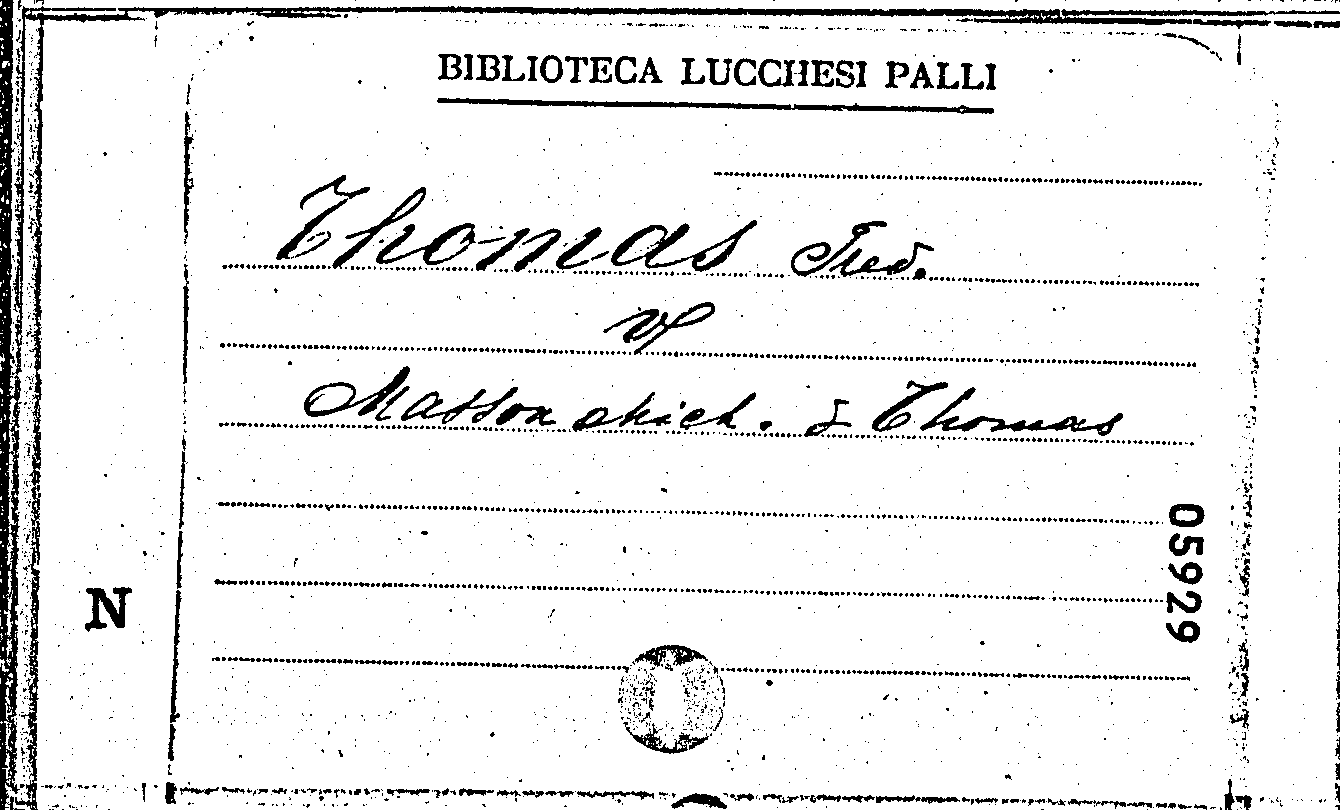 BIBLIOTECA LUCCHESI PALLI
Thomas Fred.
v
Masson Mich. & Thomas
05929
N